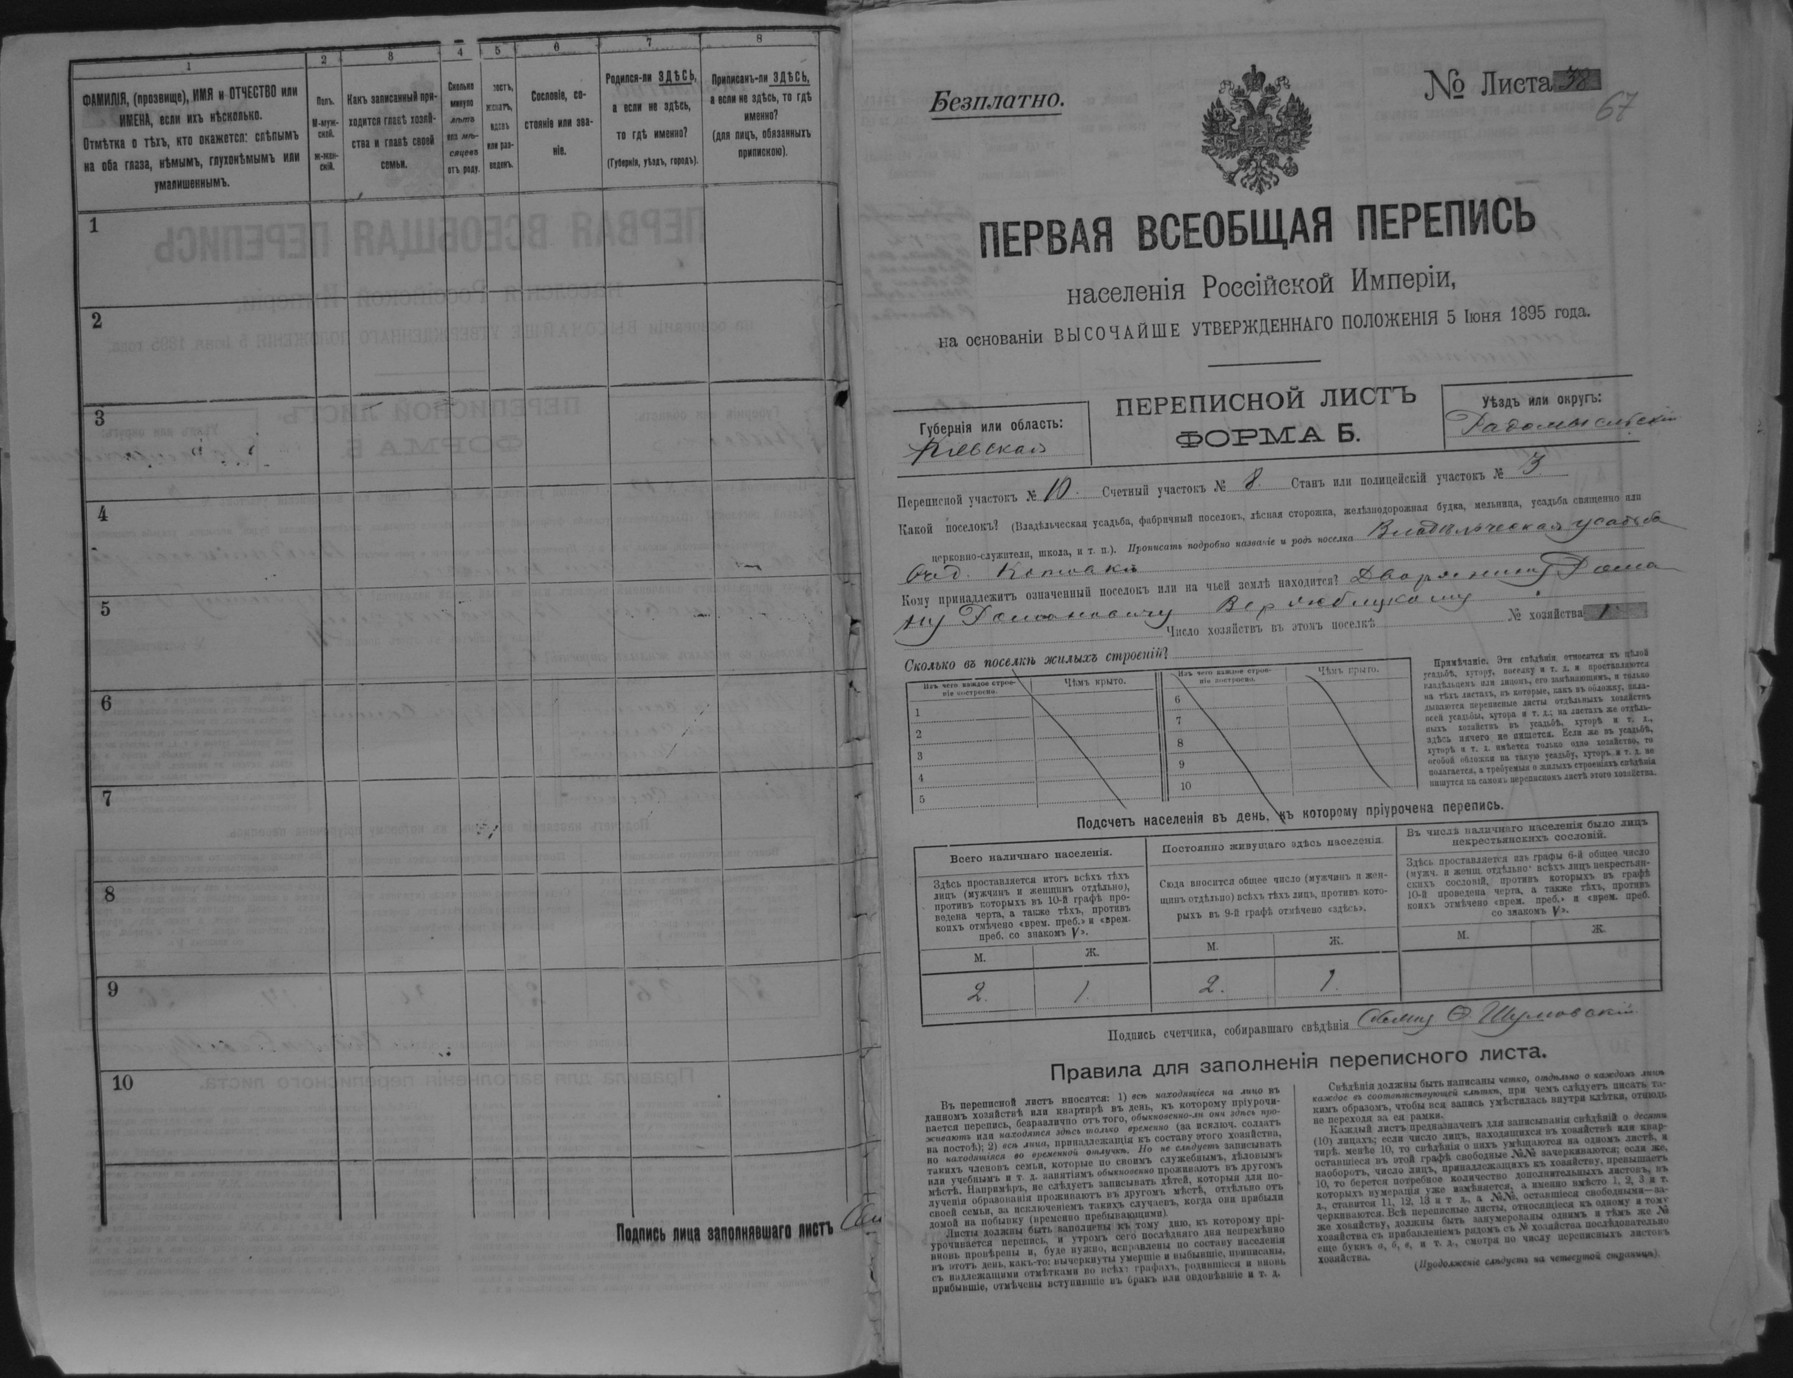 1 2 3 4 5 6 7 8
ФАМИЛІЯ, (прозвище), ИМЯ и ОТЧЕСТВО или
ИМЕНА, если ихъ нѣсколько.
Отмѣтка о тѣхъ, кто окажется: слѣпымъ
на оба глаза, нѣмымъ, глухонѣмымъ или
умалишеннымъ.
Полъ.
М-муж-
ской.
ж-жен-
скій.
Какъ записанный при-
ходится главѣ хозяй-
ства и главѣ своей
семьи.
Сколько
минуло
лѣтъ
или мѣ-
сяцевъ
отъ роду.
лостъ,
женатъ,
вдовъ
или раз-
веденъ.
Сословіе, со-
стояніе или зва-
ніе.
Родился-ли ЗДѢСЬ,
а если не здѣсь,
то гдѣ именно?
(Губернія, уѣздъ, городъ).
Приписанъ-ли ЗДѢСЬ,
а если не здѣсь, то гдѣ
именно?
(для лицъ, обязанныхъ
припискою).
1
2
3
4
5
6
7
8
9
10
Подпись лица заполнявшаго листъ
Безплатно.
№ Листа 38
67
ПЕРВАЯ ВСЕОБЩАЯ ПЕРЕПИСЬ
населенія Россійской Имперіи,
на основаніи ВЫСОЧАЙШЕ УТВЕРЖДЕННАГО ПОЛОЖЕНІЯ 5 Іюня 1895 года.
Губернія или область:
Кіевская
ПЕРЕПИСНОЙ ЛИСТЪ
ФОРМА Б.
Уѣздъ или округъ:
Радомысльскій
Переписной участокъ № 10. Счетный участокъ № 8. Станъ или полицейскій участокъ № 3
Какой поселокъ? (Владѣльческая усадьба, фабричный поселокъ, лѣсная сторожка, желѣзнодорожная будка, мельница, усадьба священно или
церковно-служителя, школа, и т. п.). Прописать подробно названіе и родъ поселка Владѣльческая усадьба
Кому принадлежитъ означенный поселокъ или на чьей землѣ находится? Дворянину Рома
ну Романовичу
Число хозяйствъ въ этомъ поселкѣ № хозяйства 1
Сколько въ поселкѣ жилыхъ строеній?
Изъ чего каждое строе-
ніе построено.
Чѣмъ крыто.
Изъ чего каждое строе-
ніе построено.
Чѣмъ крыто.
1 6
2 7
3 8
4 9
5 10
Примѣчаніе. Эти свѣдѣнія относятся къ цѣлой
усадьбѣ, хутору, поселку и т. д. и проставляются
владѣльцемъ или лицомъ, его замѣняющимъ, и только
на тѣхъ листахъ, въ которые, какъ въ обложку, вкла-
дываются переписные листы отдѣльныхъ хозяйствъ
всей усадьбы, хутора и т. д.; на листахъ же отдѣль-
ныхъ хозяйствъ въ усадьбѣ, хуторѣ и т. д.,
здѣсь ничего не пишется. Если же въ усадьбѣ,
хуторѣ и т. д. имѣется только одно хозяйство, то
особой обложки на такую усадьбу, хуторъ и т. д. не
полагается, а требуемыя о жилыхъ строеніяхъ свѣдѣнія
пишутся на самомъ переписномъ листѣ этого хозяйства.
Подсчетъ населенія въ день, къ которому пріурочена перепись.
Всего наличнаго населенія.
Здѣсь проставляется итогъ всѣхъ тѣхъ
лицъ (мужчинъ и женщинъ отдѣльно),
противъ которыхъ въ 10-й графѣ про-
ведена черта, а также тѣхъ, противъ
коихъ отмѣчено «врем. преб.» и «врем.
преб. со знакомъ V».
Постоянно живущаго здѣсь населенія.
Сюда вносится общее число (мужчинъ и жен-
щинъ отдѣльно) всѣхъ тѣхъ лицъ, противъ кото-
рыхъ въ 9-й графѣ отмѣчено «здѣсь».
Въ числѣ наличнаго населенія было лицъ
некрестьянскихъ сословій.
Здѣсь проставляется изъ графы 6-й общее число
(мужч. и женщ. отдѣльно) всѣхъ лицъ некрестьян-
скихъ сословій, противъ которыхъ въ графѣ
10-й проведена черта, а также тѣхъ, противъ
коихъ отмѣчено «врем. преб.» и «врем. преб.
со знакомъ V».
М. Ж. М. Ж. М. Ж.
2. 1. 2. 1.
Подпись счетчика, собиравшаго свѣдѣнія Шумовскій
Правила для заполненія переписного листа.
Въ переписной листъ вносятся: 1) всѣ находящіеся на лицо въ
данномъ хозяйствѣ или квартирѣ въ день, къ которому пріурочи-
вается перепись, безразлично отъ того, обыкновенно-ли они здѣсь про-
живаютъ или находятся здѣсь только временно (за исключ. солдатъ
на постоѣ); 2) всѣ лица, принадлежащія къ составу этого хозяйства,
но находящіяся во временной отлучкѣ. Но не слѣдуетъ записывать
такихъ членовъ семьи, которые по своимъ служебнымъ, дѣловымъ
или учебнымъ и т. д. занятіямъ обыкновенно проживаютъ въ другомъ
мѣстѣ. Напримѣръ, не слѣдуетъ записывать дѣтей, которыя для по-
лученія образованія проживаютъ въ другомъ мѣстѣ, отдѣльно отъ
своей семьи, за исключеніемъ такихъ случаевъ, когда они прибыли
домой на побывку (временно пребывающими).
Листы должны быть заполнены къ тому дню, къ которому прі-
урочивается перепись, и утромъ сего послѣдняго дня непремѣнно
вновь провѣрены и, буде нужно, исправлены по составу населенія
въ этотъ день, какъ-то: вычеркнуты умершіе и выбывшіе, приписаны,
съ надлежащими отмѣтками по всѣмъ графахъ, родившіеся и вновь
прибывшіе, отмѣчены вступившіе въ бракъ или овдовѣвшіе и т. д.
Свѣдѣнія должны быть написаны четко, отдѣльно о каждомъ лицѣ
каждое въ соотвѣтствующей клѣткѣ, при чемъ слѣдуетъ писать та-
кимъ образомъ, чтобы вся запись умѣстилась внутри клѣтки, отнюдь
не переходя за ея рамки.
Каждый листъ предназначенъ для записыванія свѣдѣній о десяти
(10) лицахъ; если число лицъ, находящихся въ хозяйствѣ или квар-
тирѣ, менѣе 10, то свѣдѣнія о нихъ умѣщаются на одномъ листѣ, и
оставшіеся въ этой графѣ свободные №№ зачеркиваются; если же,
наоборотъ, число лицъ, принадлежащихъ къ хозяйству, превышаетъ
10, то берется потребное количество дополнительныхъ листовъ, въ
которыхъ нумерація уже измѣняется, а именно вмѣсто 1, 2, 3 и т.
д., ставится 11, 12, 13 и т д., а №№, оставшіеся свободными—за-
черкиваются. Всѣ переписные листы, относящіеся къ одному и тому
же хозяйству, должны быть занумерованы однимъ и тѣмъ же №
хозяйства съ прибавленіемъ рядомъ съ № хозяйства послѣдовательно
еще буквъ а, б, в, и т. д., смотря по числу переписныхъ листовъ
хозяйства.
(Продолженіе слѣдуетъ на четвертой страницѣ).